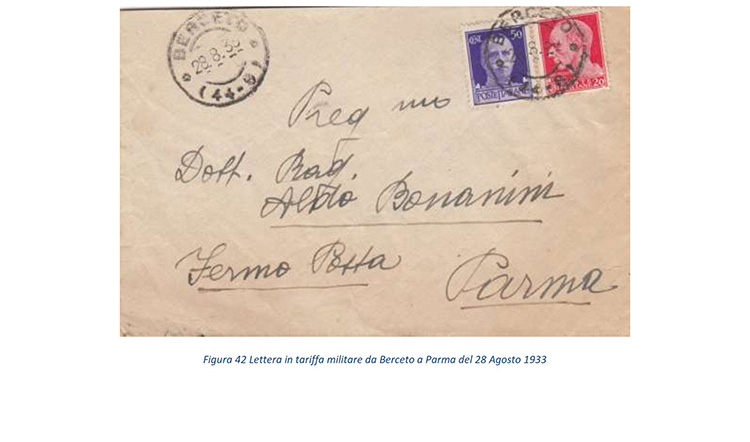 BERCETO
28.8.33
(44-8)
50
20
Preg mo
Dott. Rag.
Aldo Bonanini
Fermo Posta
Parma
Figura 42 Lettera in tariffa militare da Berceto a Parma del 28 Agosto 1933